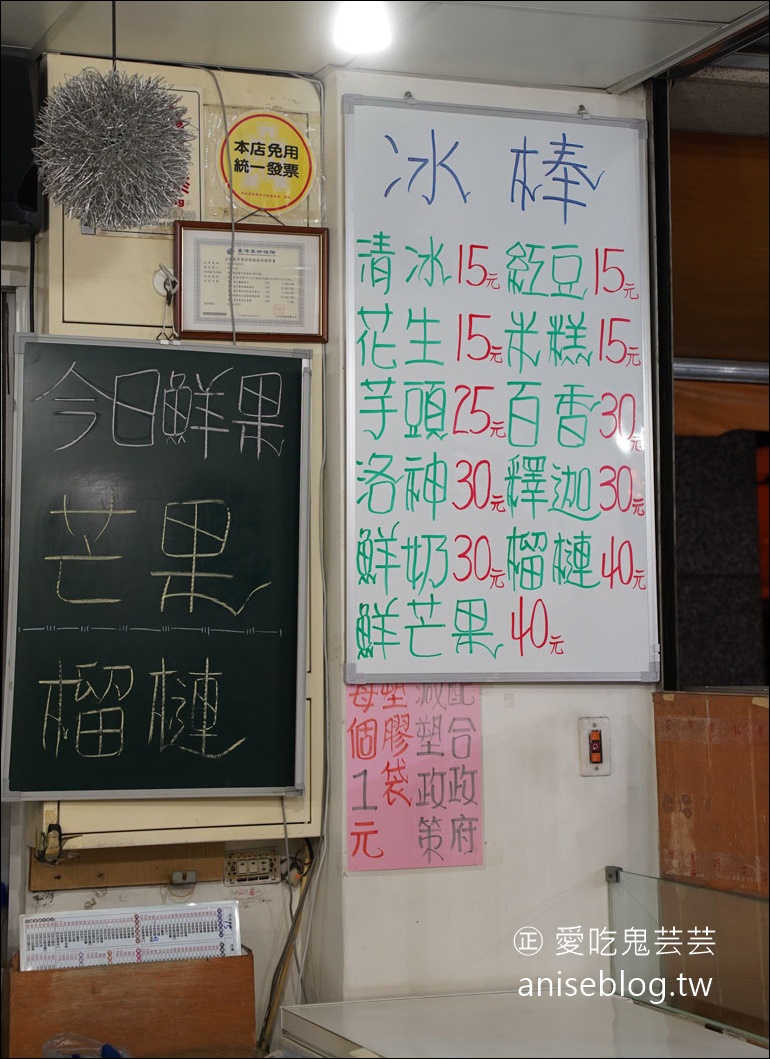 本店免用
統一發票
今日鮮果
芒果
榴槤
冰棒
清冰15元 紅豆15元
花生15元 米糕15元
芋頭25元 百香30元
洛神30元 釋迦30元
鮮奶30元 榴槤40元
鮮芒果 40元
配合政府
減塑政策
塑膠袋
每個1元
正 愛吃鬼芸芸
aniseblog.tw